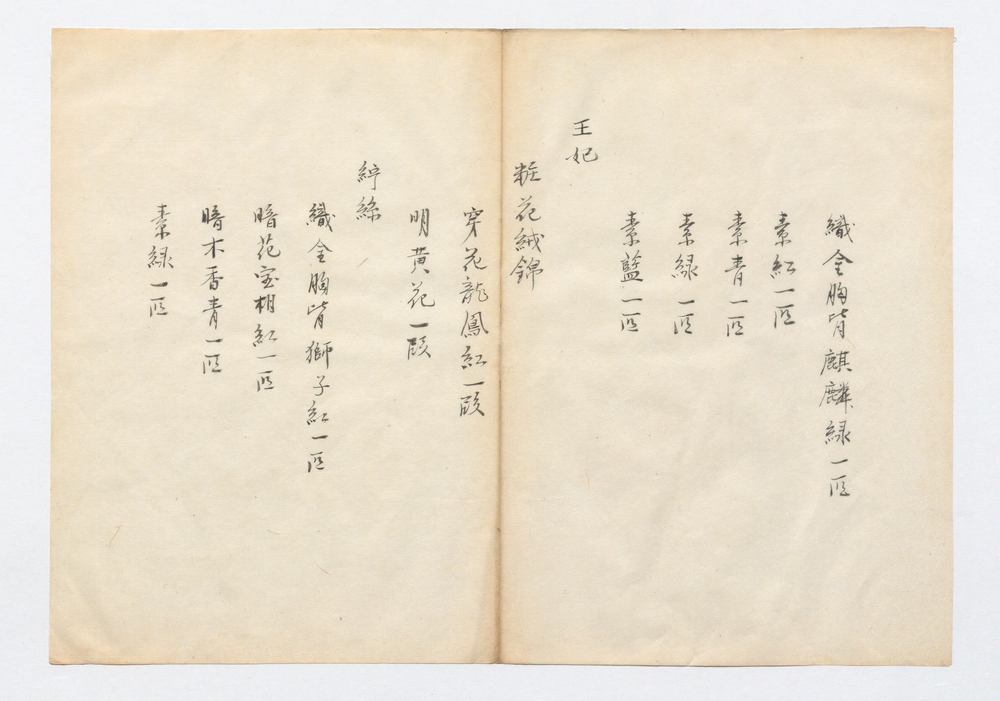 織金胸背麒麟緑一匹
素紅一匹
素青一匹
素緑一匹
素藍一匹
王妃
粧花絨錦
穿花龍鳳紅一段
明黄花一段
紵絲
織金胸背獅子紅一匹
暗花宝相紅一匹
暗木香青一匹
素緑一匹